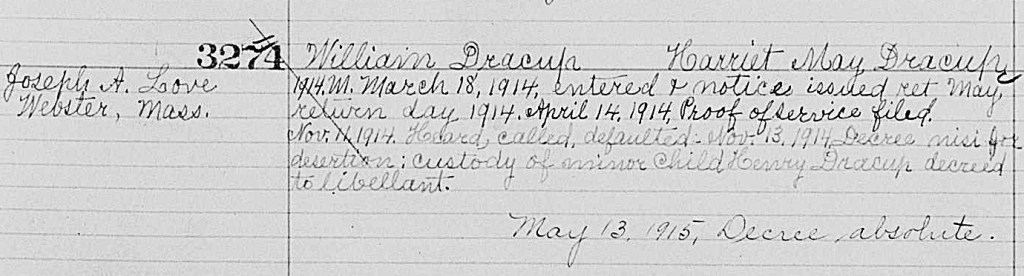 3274 William Dracup Harriet May Dracup
Joseph A. Love
Webster, Mass.
1914. M. March 18, 1914, entered & notice issued ret May
return day 1914. April 14, 1914, Proof of service filed.
Nov. 11, 1914. Heard, called, defaulted. Nov. 13, 1914, Decree nisi for
desertion; custody of minor child Henry Dracup decreed
to libellant.
May 13, 1915, Decree absolute.